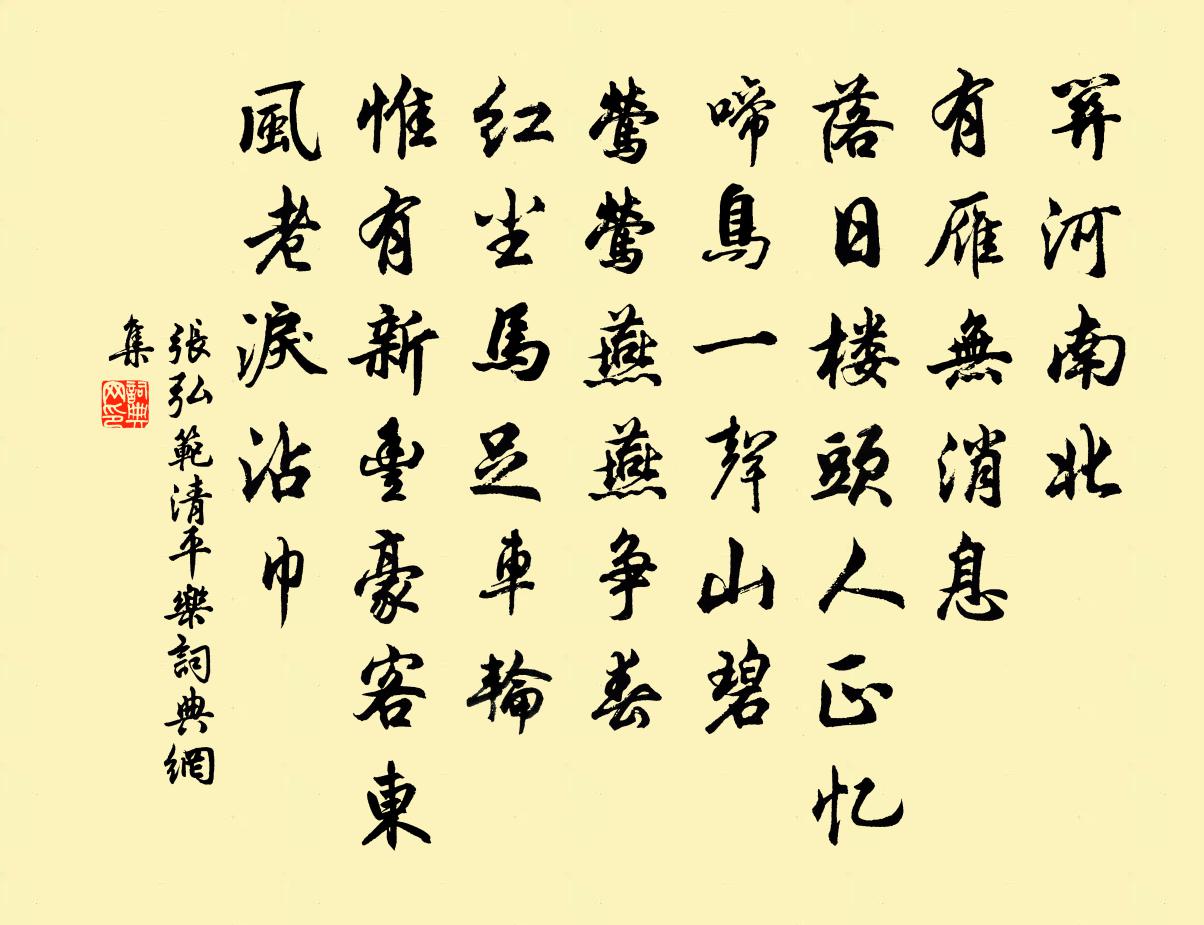 關河南北
有雁無消息
落日楼頭人正忆
啼鳥一聲山碧
鶯鶯燕燕争春
红尘馬足車輪
惟有新豐豪客東
風老淚沾巾
張弘範清平樂詞典網
集
詞典
网印